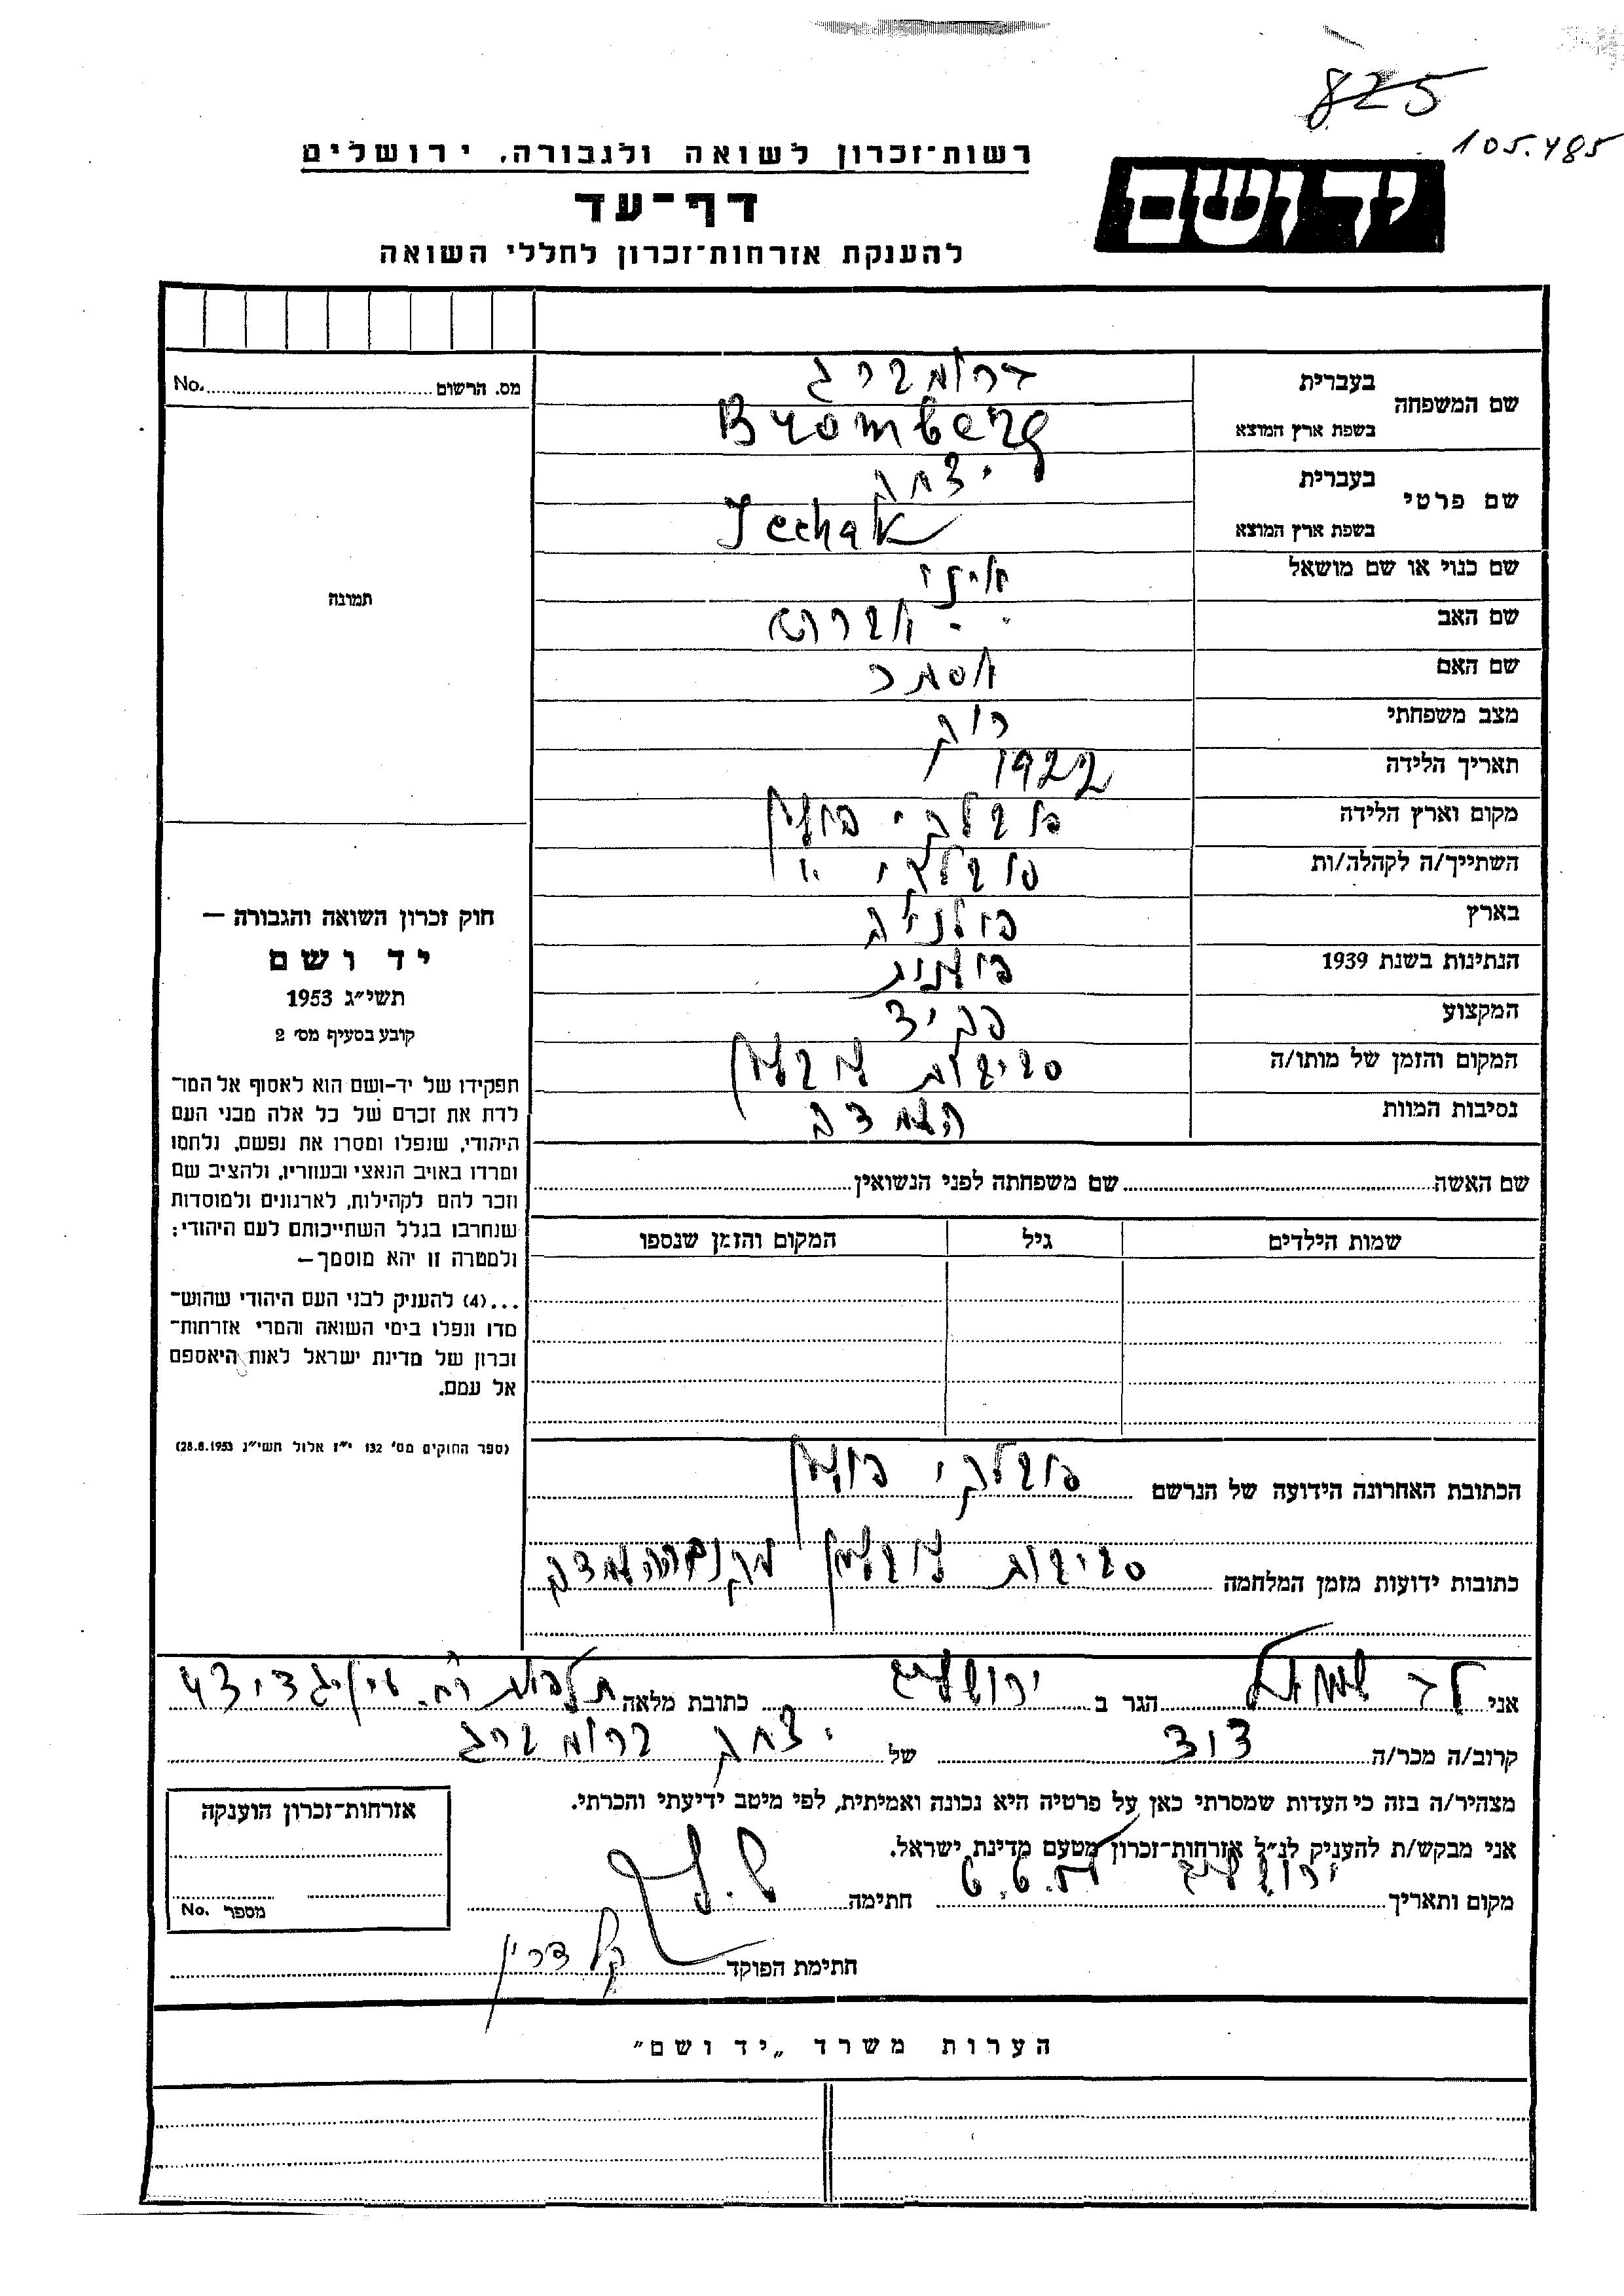 825
105.485
רשות־זכרון לשואה ולגבורה, ירושלים
יד ושם
דף־עד
להענקת אזרחות־זכרון לחללי השואה
מס. הרשום No.
תמונה
שם המשפחה בעברית ברומברג
בשפת ארץ המוצא Bromberg
שם פרטי בעברית יצחק
בשפת ארץ המוצא Icchak
שם כנוי או שם מושאל
שם האב
שם האם אסתר
מצב משפחתי רווק
תאריך הלידה 1922
מקום וארץ הלידה
השתייך/ה לקהלה/ות
בארץ פולניה
הנתינות בשנת 1939 פולנית
המקצוע פקיד
המקום והזמן של מותו/ה סביבות
נסיבות המוות השמדה
שם האשה שם משפחתה לפני הנשואין
שמות הילדים גיל המקום והזמן שנספו
הכתובת האחרונה הידועה של הנרשם
כתובות ידועות מזמן המלחמה סביבות
חוק זכרון השואה והגבורה —
יד ושם
תשי״ג 1953
קובע בסעיף מס׳ 2
תפקידו של יד-ושם הוא לאסוף אל המו־
לדת את זכרם של כל אלה מבני העם
היהודי, שנפלו ומסרו את נפשם, נלחמו
ומרדו באויב הנאצי ובעוזריו, ולהציב שם
וזכר להם לקהילות, לארגונים ולמוסדות
שנחרבו בגלל השתייכותם לעם היהודי;
ולמטרה זו יהא מוסמך—
...(4) להעניק לבני העם היהודי שהוש־
מדו ונפלו בימי השואה והמרי אזרחות־
זכרון של מדינת ישראל לאות היאספם
אל עמם.
(ספר החוקים מס׳ 132 י״ז אלול תשי״ג 28.8.1953)
אני לד שמואל הגר ב ירושלים כתובת מלאה
קרוב/ה מכר/ה דוד של יצחק ברומברג
מצהיר/ה בזה כי העדות שמסרתי כאן על פרטיה היא נכונה ואמיתית, לפי מיטב ידיעתי והכרתי.
אני מבקש/ת להעניק לנ״ל אזרחות־זכרון מטעם מדינת ישראל.
מקום ותאריך ירושלים חתימה
חתימת הפוקד
אזרחות־זכרון הוענקה
מספר No.
הערות משרד „יד ושם״